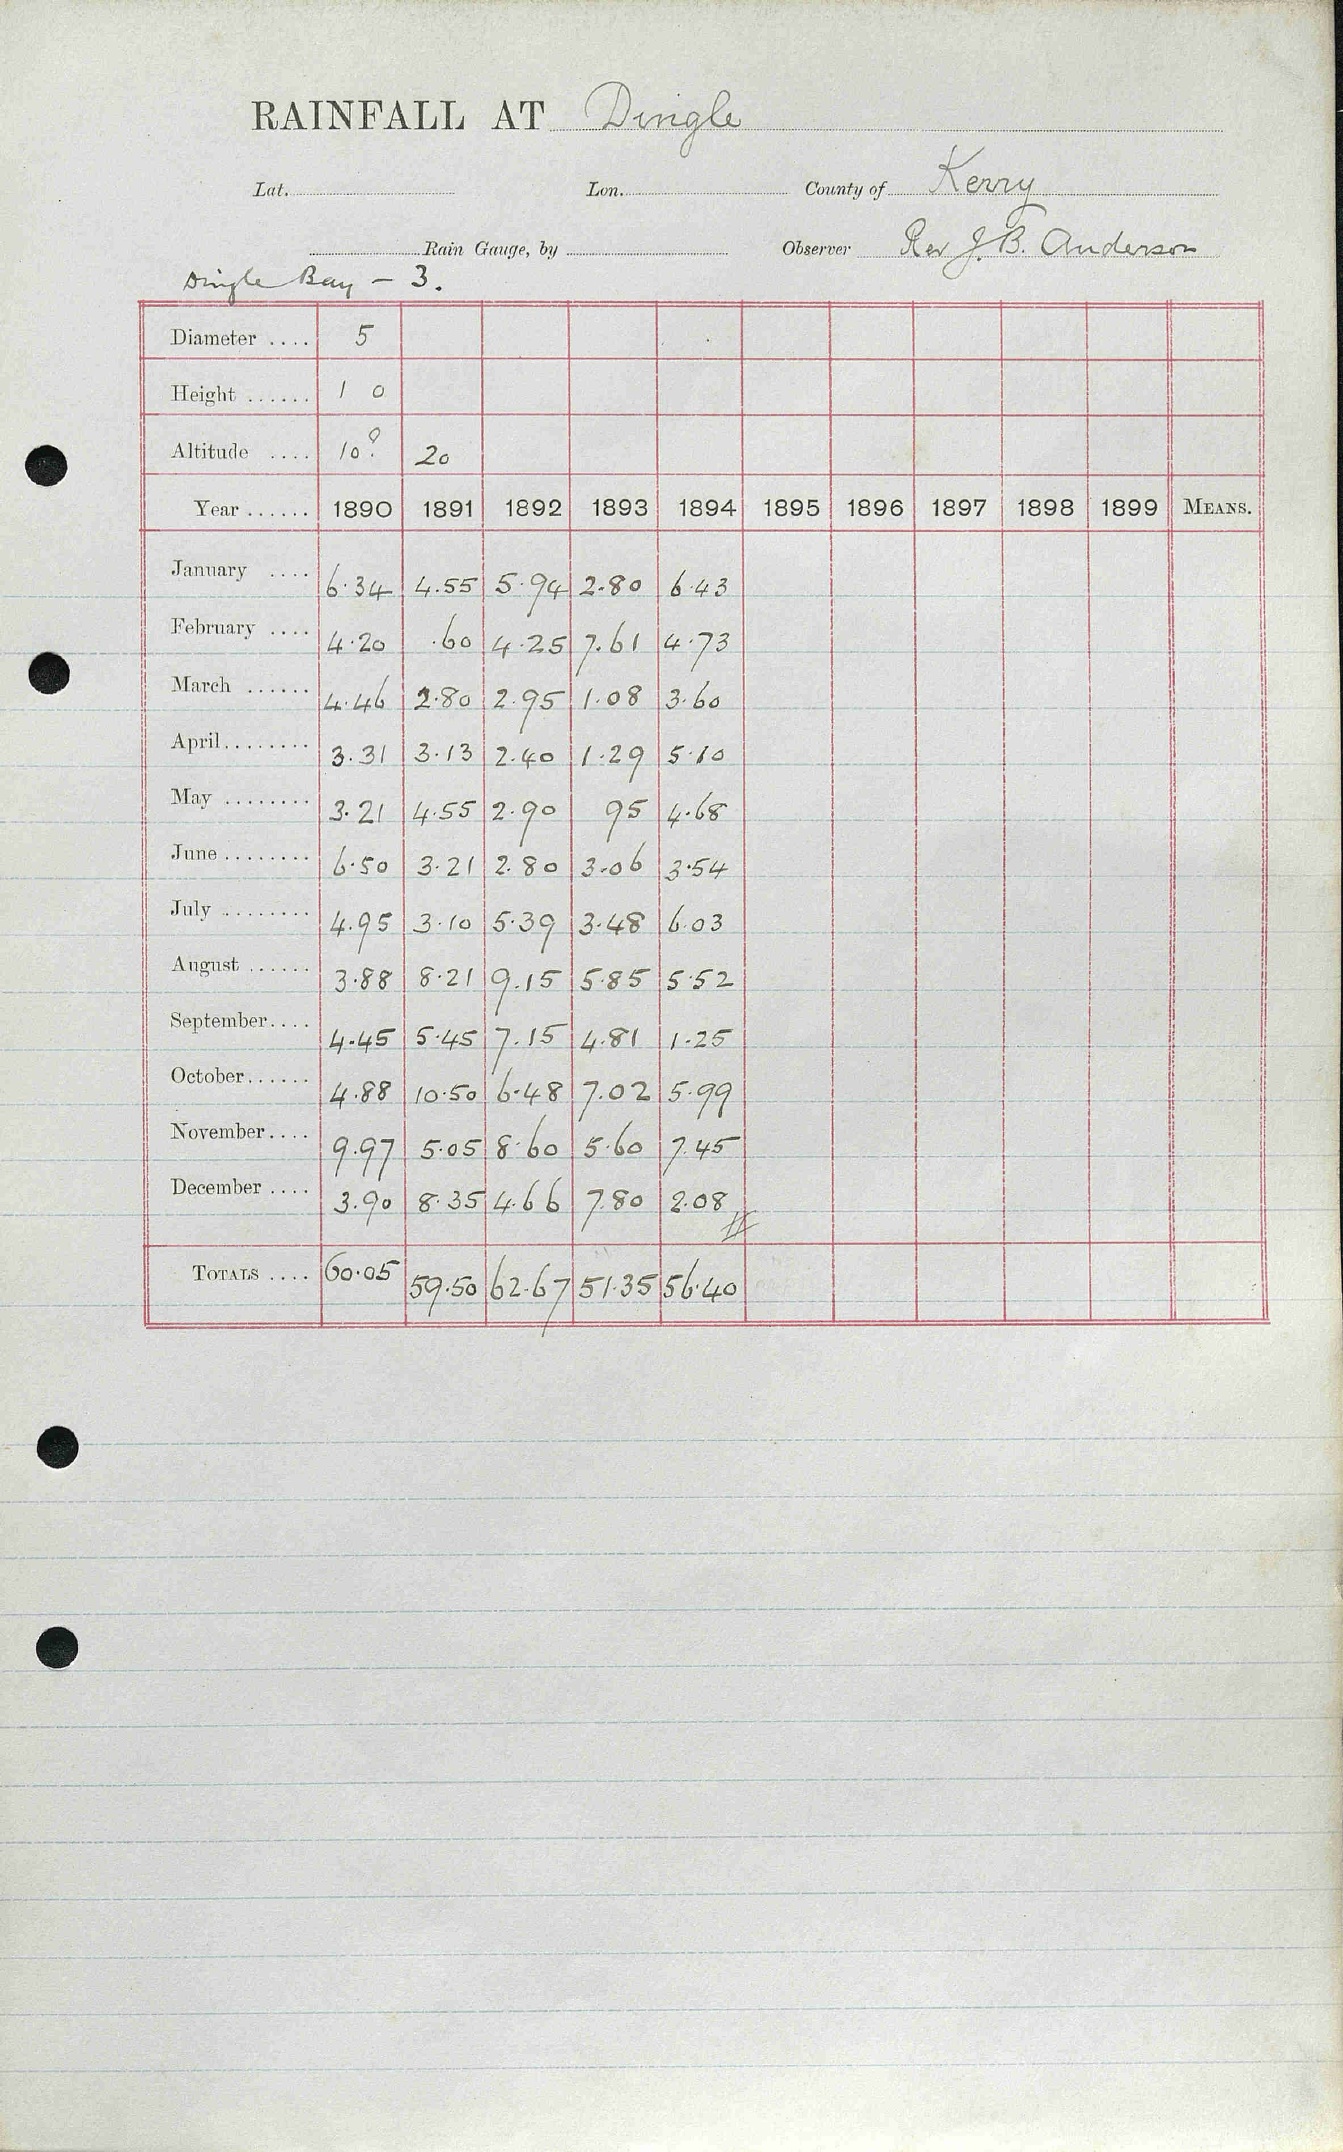 RAINFALL AT Dingle
Lat. Lon. County of Kerry
Rain Gauge, by Observer Rev J. B. Anderson
Dingle Bay - 3.
Diameter .... 5
Height ...... 1 0
Altitude .... 10? 20
Year ...... 1890 1891 1892 1893 1894 1895 1896 1897 1898 1899 MEANS.
January .... 6.34 4.55 5.94 2.80 6.43
February .... 4.20 .60 4.25 7.61 4.73
March ...... 4.46 2.80 2.95 1.08 3.60
April........ 3.31 3.13 2.40 1.29 5.10
May ........ 3.21 4.55 2.90 95 4.68
June ........ 6.50 3.21 2.80 3.06 3.54
July ........ 4.95 3.10 5.39 3.48 6.03
August ...... 3.88 8.21 9.15 5.85 5.52
September.... 4.45 5.45 7.15 4.81 1.25
October...... 4.88 10.50 6.48 7.02 5.99
November.... 9.97 5.05 8.60 5.60 7.45
December .... 3.90 8.35 4.66 7.80 2.08
TOTALS .... 60.05 59.50 62.67 51.35 56.40